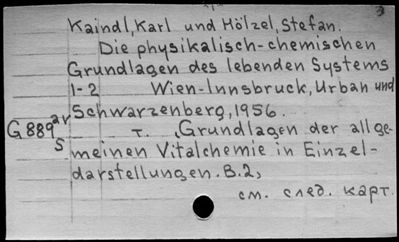 3
Kaindl, Karl und Hölzel, Stefan.
Die physikalisch-chemischen
Grundlagen des lebenden Systems
1-2 Wien-Innsbruck, Urban und
Schwarzenberg, 1956.
G889 av s
т. Grundlagen der allge-
meinen Vitalchemie in Einzel-
darstellungen. B.2,
см. след. карт.